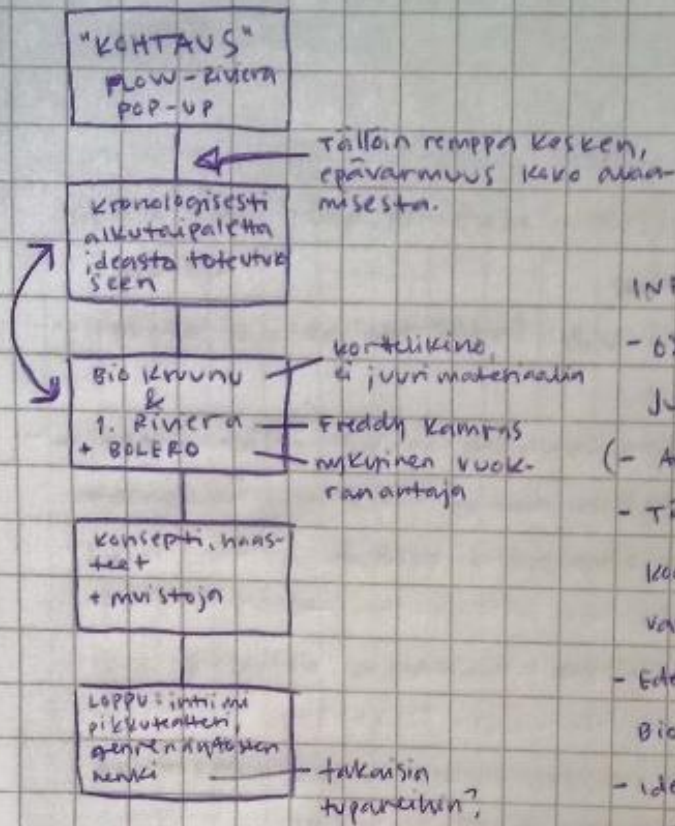 "KOHTAUS"
FLOW-Riviera
POP-UP
Tällöin remppa kesken,
epävarmuus koko avaa-
misesta.
kronologisesti
alkutaipaletta
ideasta toteutuk
seen
Bio Kruunu
&
1. Riviera
+ BOLERO
kortelikino,
ei juuri materiaalia
Freddy Kamras
nykyinen vuok-
ranantaja
konsepti, haas-
teet
+ muistoja
Loppu: intiimi
pikkuteatteri,
genrenäytösten
henki
takaisin
tupareihin?
- Ti
- Ede
Bio
- ide